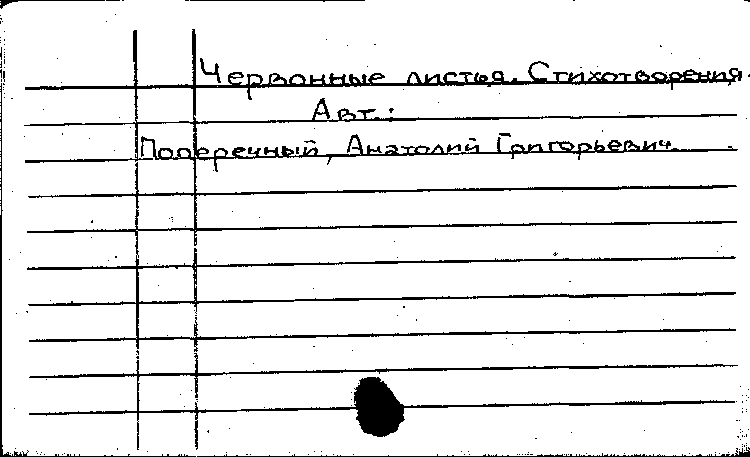 Червонные листья. Стихотворения.
Авт.:
Поперечный, Анатолий Григорьевич.